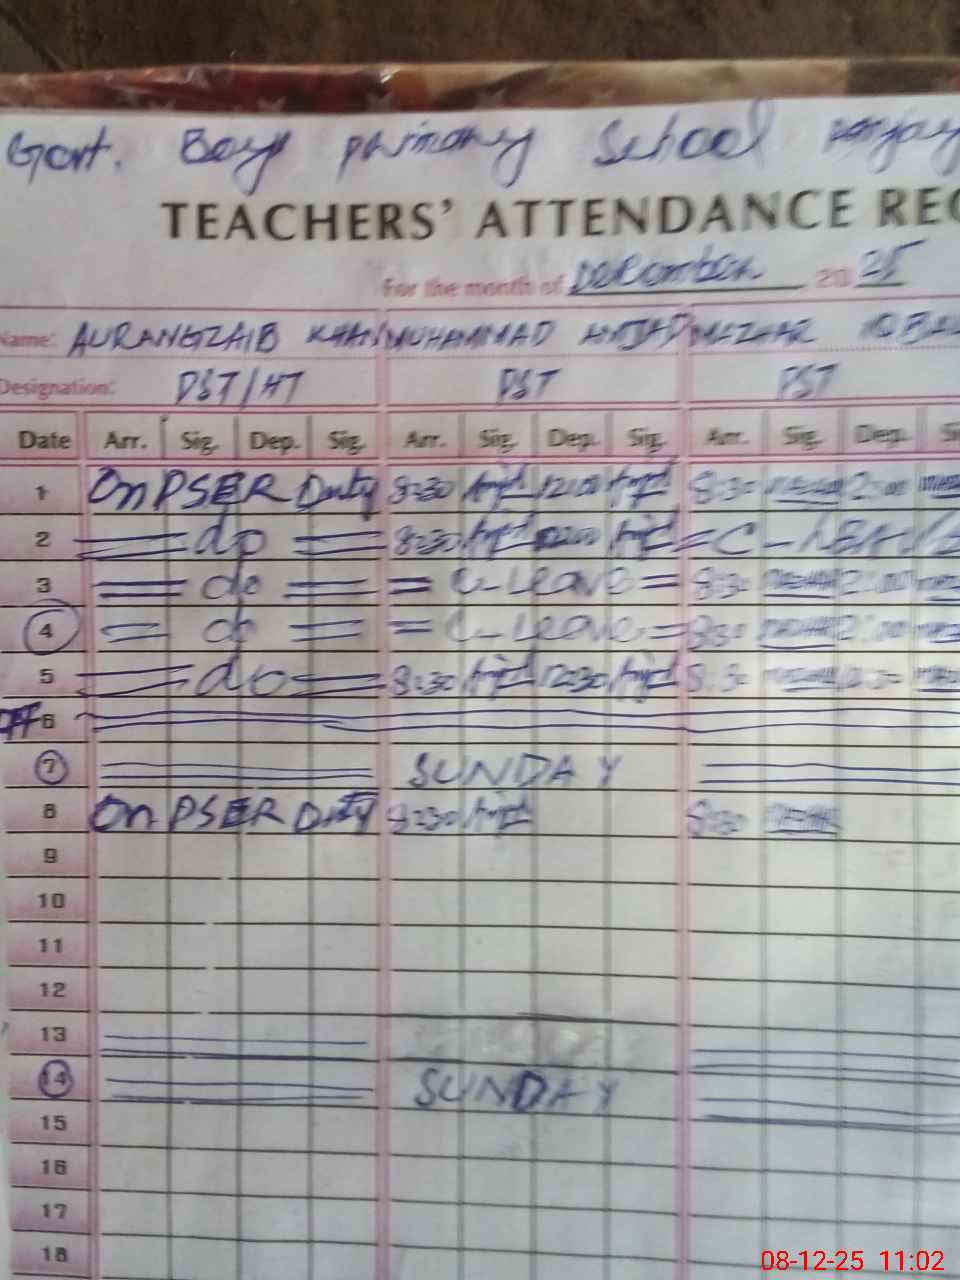 Govt. Boys primary School
TEACHERS' ATTENDANCE REC
For the month of December 2025
Name: AURANGZAIB KHAN MUHAMMAD AMJAD MAZHAR IQBAL
Designation: PST/HT PST PST
Date Arr. Sig. Dep. Sig. Arr. Sig. Dep. Sig. Arr. Sig. Dep. Si
1 On PSER Duty 8:30 Amjd 12:00 Amjd 8:30
2 = do = 8:30 Amjd Amjd = C-LEAVE
3 = do = = C-Leave = 8:30
4 = do = = C-Leave = 8:30
5 = do = 8:30 Amjd 12:30 Amjd 8:30
OFF 6
7 SUNDAY
8 On PSER Duty 8:30 Amjd 8:30
9
10
11
12
13
14 SUNDAY
15
16
17
18
08-12-25 11:02